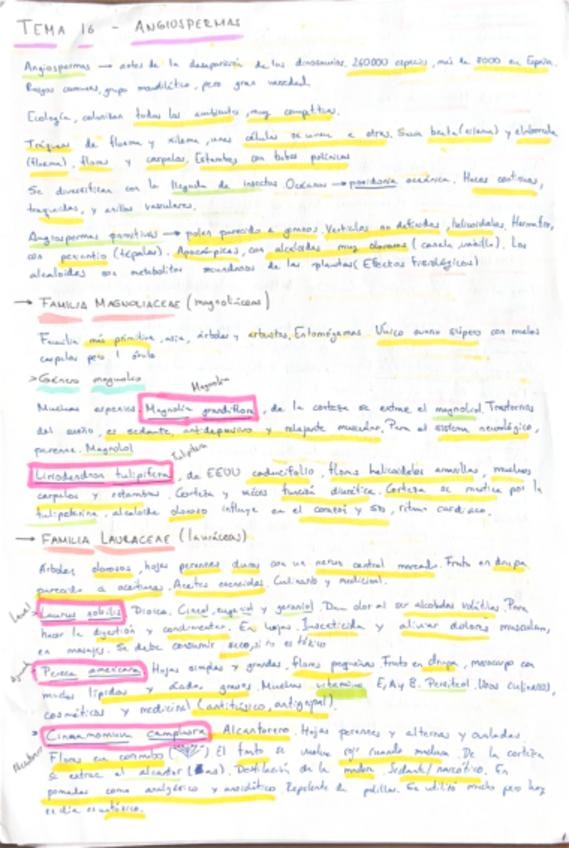 TEMA 16 - ANGIOSPERMAS
Angiospermas → antes de la desaparición de los dinosaurios. 260000 especies, más de 8000 en España.
Rasgos comunes, grupo monofilético, pero gran variedad.
Ecología, colonizan todos los ambientes, muy competitivas.
Tráqueas de floema y xilema, unas células se unen a otras. Savia bruta (xilema) y elaborada
(floema), flores y carpelos. Estambres con tubos polínicos
Se diversifican con la llegada de insectos. Océanos → posidonia oceánica. Haces continuos,
traqueidas, y anillos vasculares.
Angiospermas primitivas → polen parecido a gimnos. Verticilos no definidos, helicoidales. Hermafro,
con periantio (tépalos). Apocárpicas, con alcaloides muy olorosos (canela, vainilla). Los
alcaloides son metabolitos secundarios de las plantas (Efectos fisiológicos)
→ FAMILIA MAGNOLIACEAE (magnoliáceas)
Familia más primitiva, asia, árboles y arbustos. Entomógamas. Único ovario súpero con muchos
carpelos pero 1 óvulo
> Género magnolia
Magnolia
Muchas especies. Magnolia grandiflora, de la corteza se extrae el magnolol. Trastornos
del sueño, es sedante, antidepresivo y relajante muscular. Para el sistema neurológico,
parkinson. Magnolol
Tulipero
Liriodendron tulipifera, de EEUU caducifolio, flores helicoidales amarillas, muchos
carpelos y estambres. Corteza y raíces función diurética. Corteza se mastica por la
tulipeterina, alcaloide oloroso influye en el corazón y SN, ritmo cardíaco.
→ FAMILIA LAURACEAE (lauráceas)
Árboles olorosos, hojas perennes duras con un nervio central marcado. Fruto en drupa
parecido a aceitunas. Aceites esenciales. Culinario y medicinal.
Laurel > Laurus nobilis Dioica. Cineol, eugenol y geraniol. Dan olor al ser alcoholes volátiles. Para
hacer la digestión y condimentar. En hojas. Insecticida y aliviar dolores musculares,
en masajes. Se debe consumir seco, si no es tóxico
Persea americana Hojas simples y grandes, flores pequeñas. Fruto en drupa, mesocarpo con
muchos lípidos y ácidos grasos. Muchas vitaminas E, A y B. Perseitol. Usos culinarios,
cosméticos y medicinal (antitusivo, antigripal).
> Cinnamomum camphora Alcanforero. Hojas perennes y alternas y ovaladas.
Flores en corimbo ( ) El fruto se vuelve rojo cuando madura. De la corteza
se extrae el alcanfor. Destilación de la madera. Sedante/narcótico. En
pomadas como analgésico y antiséptico. Repelente de polillas. Se utilizó mucho pero hoy
en día es tóxico.